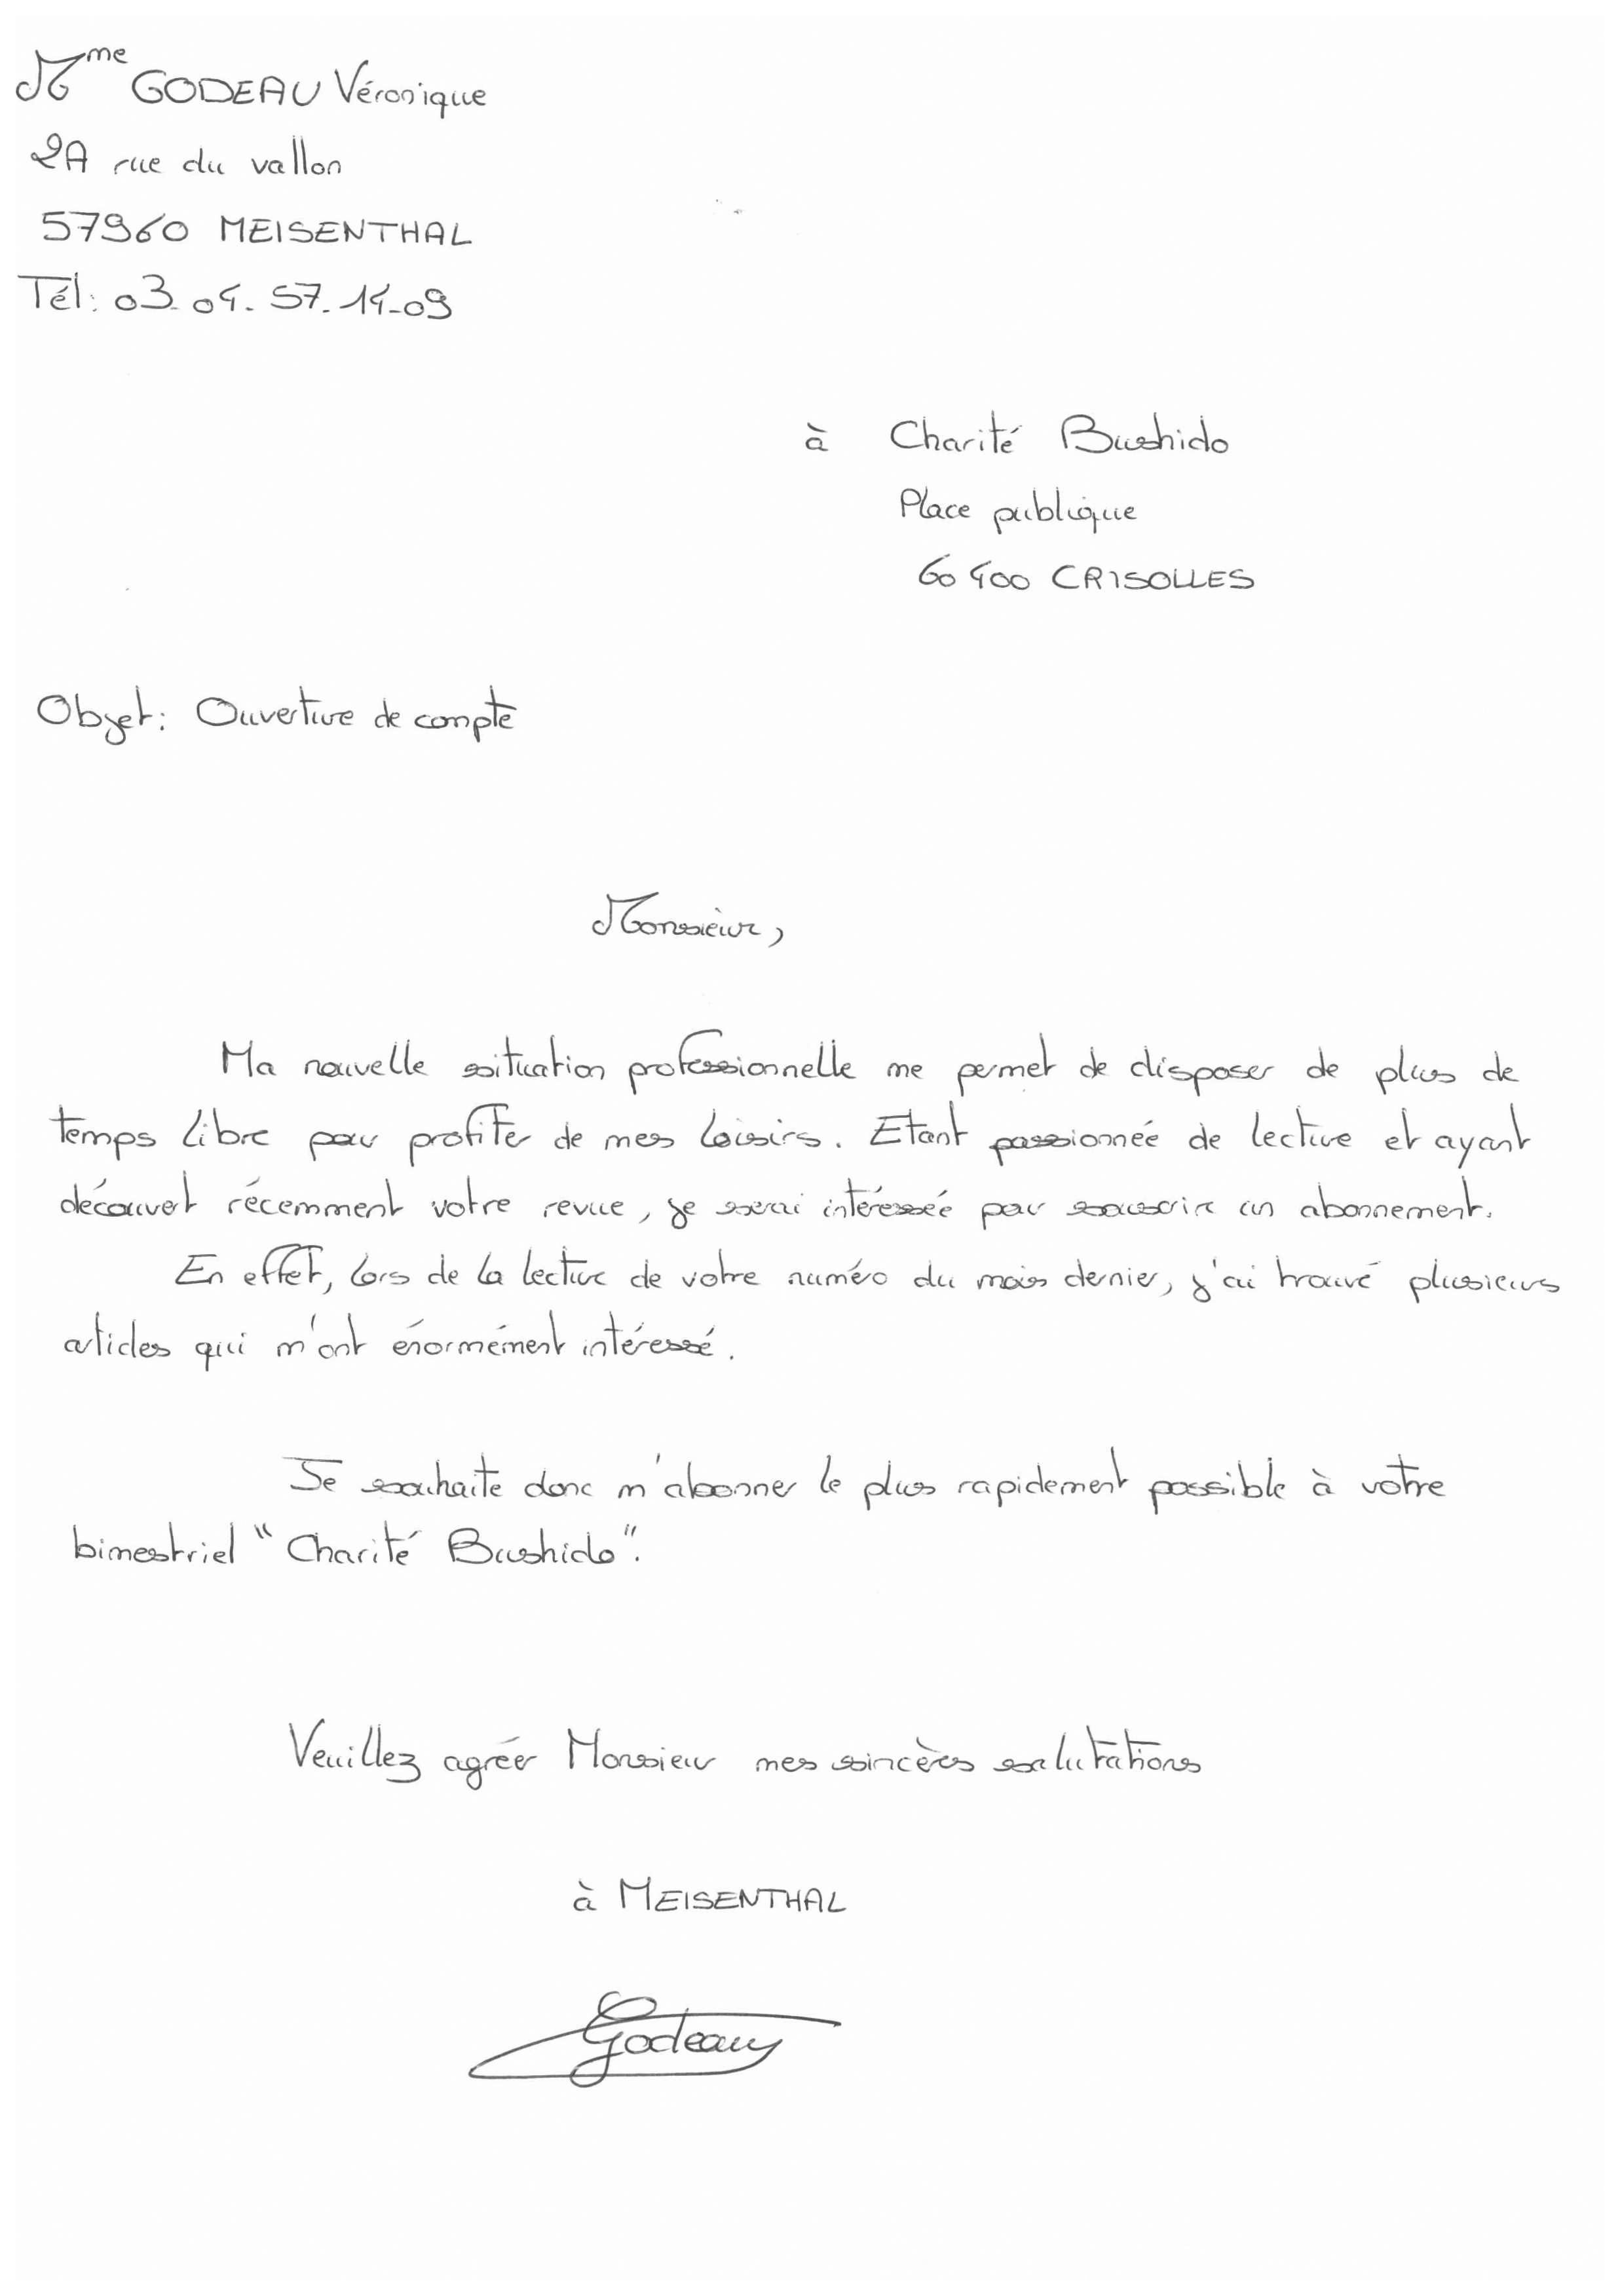 Mme GODEAU Véronique
2A rue du vallon
57960 MEISENTHAL
Tél: 03.04.57.14.09
à Charité Bushido
Place publique
60400 CRISOLLES
Objet: Ouverture de compte
Monsieur,
Ma nouvelle situation professionnelle me permet de disposer de plus de
temps libre pour profiter de mes loisirs. Etant passionnée de lecture et ayant
découvert récemment votre revue, je serai intéressée pour souscrire un abonnement.
En effet, lors de la lecture de votre numéro du mois dernier, j'ai trouvé plusieurs
articles qui m'ont énormément intéressé.
Je souhaite donc m'abonner le plus rapidement possible à votre
bimestriel "Charité Bushido".
Veuillez agréer Monsieur mes sincères salutations
à MEISENTHAL
Godeau